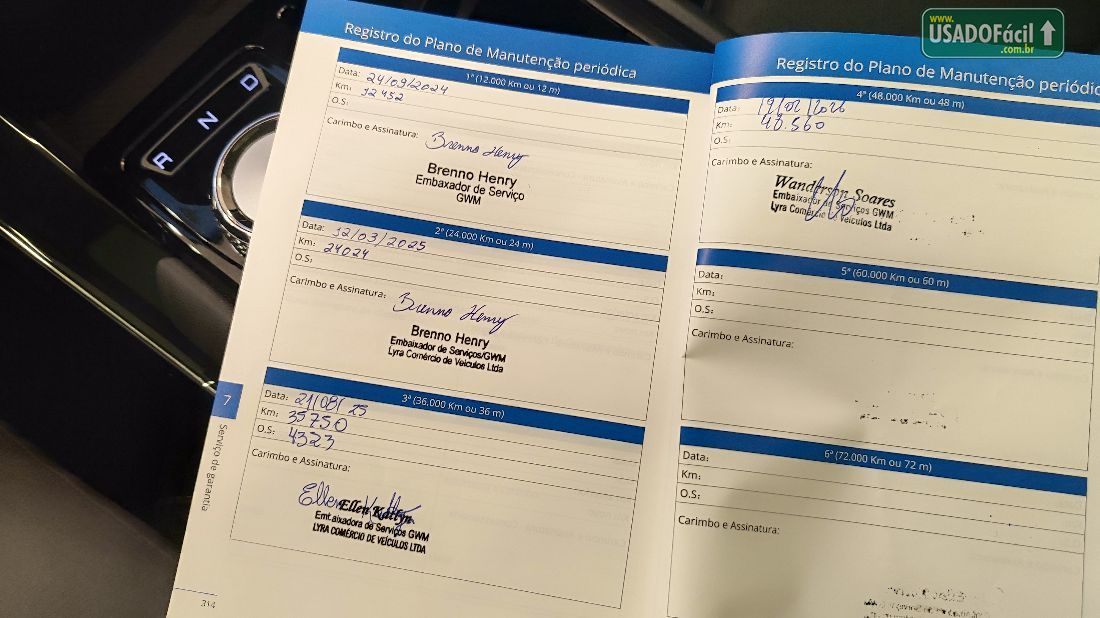 www.
USADOFácil
.com.br
R N D
Registro do Plano de Manutenção periódica
1ª (12.000 Km ou 12 m)
Data: 24/09/2024
Km: 12452
O.S:
Carimbo e Assinatura:
Brenno Henry
Brenno Henry
Embaxador de Serviço
GWM
2ª (24.000 Km ou 24 m)
Data: 12/03/2025
Km: 24024
O.S:
Carimbo e Assinatura:
Brenno Henry
Brenno Henry
Embaixador de Serviços/GWM
Lyra Comércio de Veículos Ltda
3ª (36.000 Km ou 36 m)
Data: 21/08/25
Km: 35750
O.S: 4323
Carimbo e Assinatura:
Ellen Katlyn
Embaixadora de Serviços GWM
LYRA COMÉRCIO DE VEÍCULOS LTDA
7
Serviço de garantia
314
Registro do Plano de Manutenção periódic
4ª (48.000 Km ou 48 m)
Data: 19/02/2026
Km: 48.560
O.S:
Carimbo e Assinatura:
Wanderson Soares
Embaixador de Serviços GWM
Lyra Comércio de Veículos Ltda
5ª (60.000 Km ou 60 m)
Data:
Km:
O.S:
Carimbo e Assinatura:
6ª (72.000 Km ou 72 m)
Data:
Km:
O.S:
Carimbo e Assinatura: